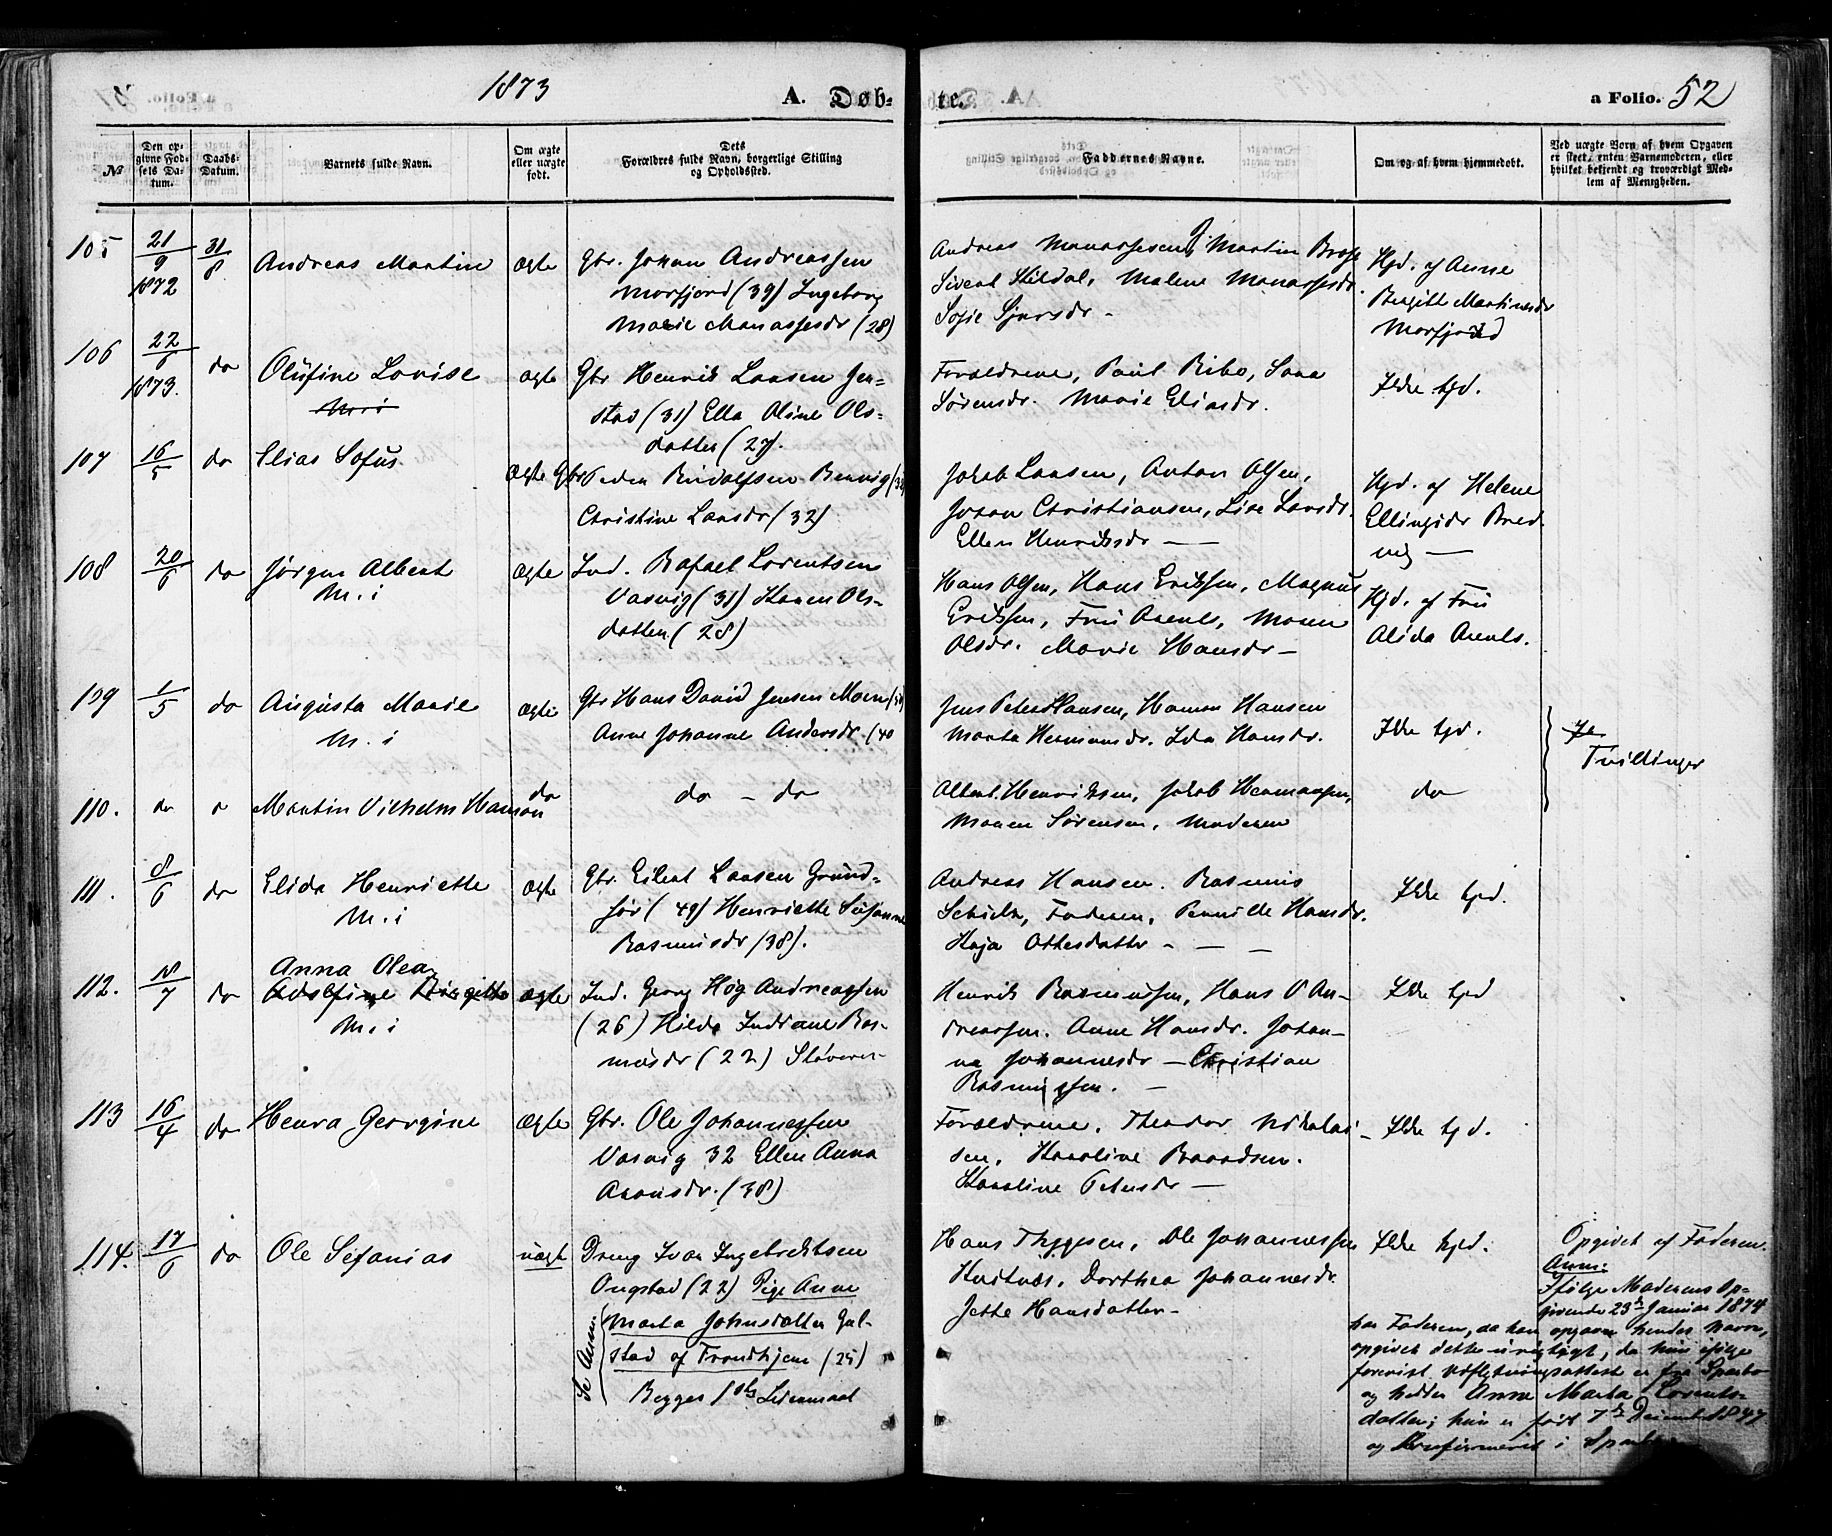 1873
A. Døb-
te.
a Folio. 52
№
Den op-
givne Fød-
sels Da-
tum.
Daabs-
Datum.
Barnets fulde Navn.
Om ægte
eller uægte
født.
Dets
Forældres fulde Navn, borgerlige Stilling
og Opholdssted.
Faddernes Navne.
Om og af hvem hjemmedøbt.
Ved uægte Børn af hvem Opgaven
er skeet, enten Barnemoderen, eller
hvilket bekjendt og troværdigt Med-
lem af Menigheden.
105
21/9
1872
31/8
Andreas Martin
ægte
Gbr. Johan Andreassen
Morfjord (39) Ingeborg
Marie Manassesdr (28)
Andreas Manassesen, Martin
Sivert Hildal, Malene Manassesdr.
Sofie Sjursdr -
Hjd. af Anne
Birgitte Martinesdr
Morfjord
106
22/6
1873.
do
Olufine Lovise
M. i
ægte
Gbr Henrik Larsen Jen-
stad (31) Ella Oline Ols-
datter (27).
Forældrene, Poul Ribe, Sara
Sørensdr. Marie Eliasdr.
Ikke hjd.
107
16/5
do
Elias Sofus
Ægte
Gbr Peder Rudolfsen
Christine Larsdr (32)
Jakob Larsen, Anton Olsen,
Johan Christiansen, Lise Larsdr.
Ellen Henriksdr —
Hjd. af Helene
108
20/6
do
Jørgen Albert
M. i
Ægte
Ind. Rafael Lorentsen
Vasvig (31) Karen Ols-
datter (28)
Hans Olsen, Hans Eriksen, Magnus
Eriksen, Fru Arents, Maren
Olsdr. Marie Hansdr -
Hjd. af Fru
Alida Arents.
109
1/5
do
Augusta Marie
M. i
ægte
Gbr Hans David Jensen Moen
Anne Johanne Andersdr. (40
Jens Peter Hansen, Hanna Hansen
Marta Hermansdr. Ida Hansdr.
Ikke hjd.
Tvillinger
110.
do
Martin Vilhelm Hanson
do
do - do
Albert Henriksen, Jakob Hermansen,
Maren Sørensen, Moderen
do
111.
8/6
do
Elida Henriette
M. i
ægte
Gbr. Eilert Larsen Grund-
før (49) Henriette Susanne
Rasmusdr (38).
Andreas Hansen. Rasmus
Schielz, Faderen, Pernille Hansdr.
Kaja Ottesdatter - - -
Ikke hjd.
112.
18/7
do
Anna Olea
Adolfine Birgitte
M. i
ægte
Ind. Georg Høg Andreassen
(26) Hilda Indiane Ras-
musdr (22)
Henrik Rasmussen, Hans O An-
dreassen. Anne Hansdr. Johan-
ne Johannesdr - Christian
Rasmussen. —
Ikke hjd
113
16/4
do
Henra Georgine
Ægte
Gbr. Ole Johannessen
Vasvig 32 Ellen Anna
Aronsdr. (38)
Forældrene. Theodor Nikolai-
sen, Karoline Baardsen.
Karoline Petersdr —
Ikke hjd.
114.
17/6
do
Ole Sefanias
uægte
Dreng Ivar Ingebrektsen
Ongstad (22) Pige Anne
Marta Johnsdatter Gul-
stad af Trondhjem (25)
Begges 1ste Leiermaal
Se Anm.
Hans Thygesen, Ole Johannessen
Hustnæs, Dorthea Johannesdr.
Jette Hansdatter -
Ikke hjd.
Opgivet af Faderen.
Anm:
Ifølge Moderens Op-
givende 23de Januar 1874
har Faderen, da han opgav hendes Navn,
opgivet dette urigtigt, da hun ifølge
forevist Udflytningsattest er fra Sparbo
og hedder Anne Marta Lorents-
datter; hun er født 7de Decemb. 1847
og Konfirmeret i